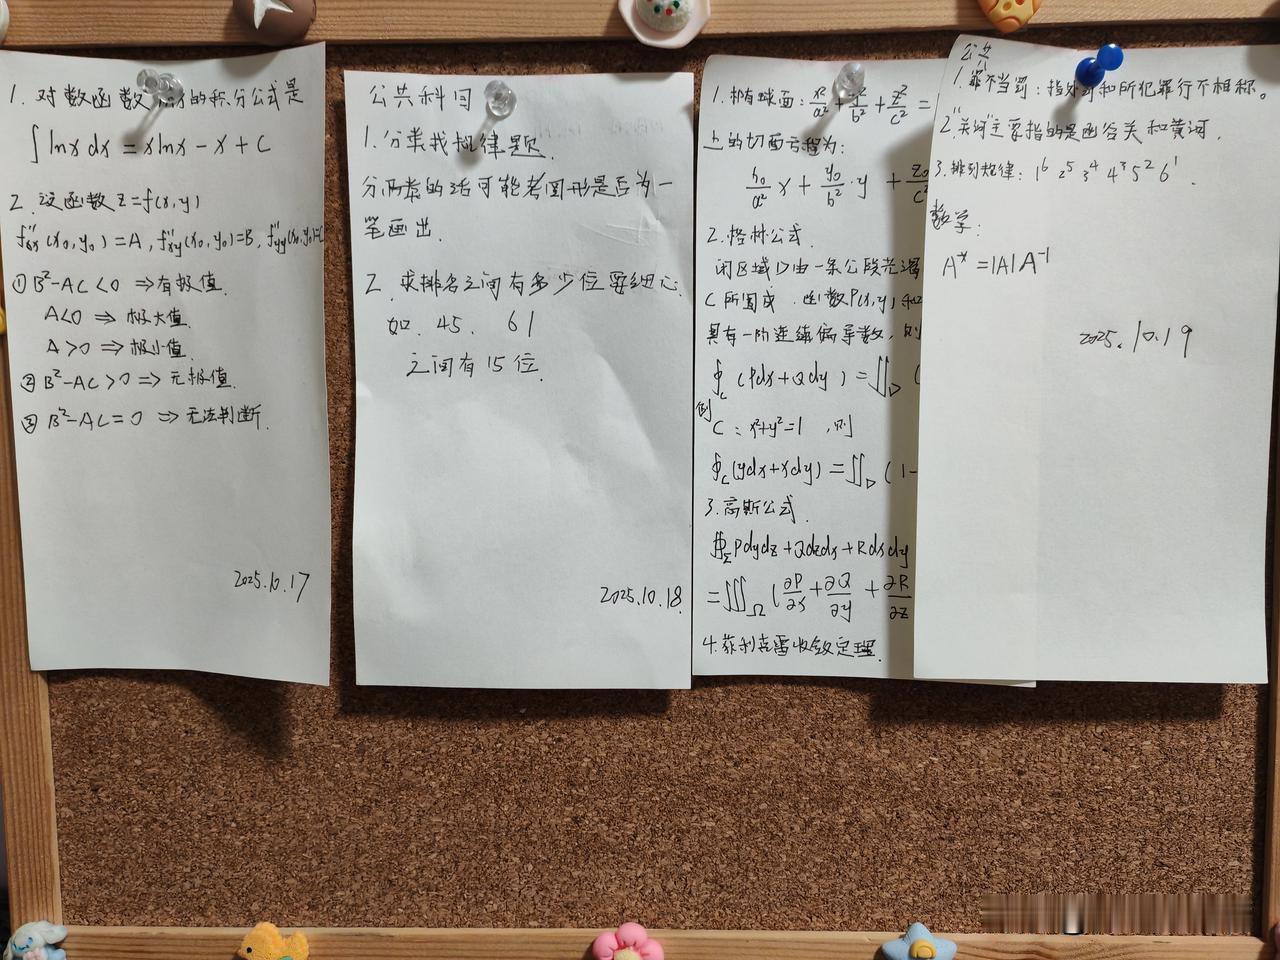 1. 对数函数 的积分公式是
∫lnxdx = xlnx - x + C
2. 设函数 z=f(x,y)
f''xx(x₀,y₀)=A, f''xy(x₀,y₀)=B, f''yy(x₀,y₀)=C
① B²-AC<0 ⇒有极值.
A<0 ⇒ 极大值.
A>0 ⇒极小值.
② B²-AC>0 ⇒ 无极值.
③ B²-AC=0 ⇒ 无法判断.
2025.10.17
公共科目
1. 分类找规律题.
分两类的话可能考图形是否为一
笔画出.
2. 求排名之间有多少位要细心.
如. 45. 61
之间有15位.
2025.10.18.
1. 椭球面: x²/a² + y²/b² + z²/c² =
上的切面方程为:
x₀/a² x + y₀/b² · y + z₀/c²
2. 格林公式.
闭区域D由一条分段光滑
C所围成. 函数P(x,y)和
具有一阶连续偏导数, 则
∮c (Pdx+Qdy) = ∬D (
例
C: x²+y²=1, 则
∮c(ydx+xdy) = ∬D (1-
3. 高斯公式.
∯Σ Pdydz+Qdzdx+Rdxdy
= ∭Ω (∂P/∂x + ∂Q/∂y + ∂R/∂z
4. 狄利克雷收敛定理.
公共
1. 罪不当罚: 指处罚和所犯罪行不相称.
2. "关河"主要指的是函谷关和黄河.
3. 排列规律: 1⁶ 2⁵ 3⁴ 4³ 5² 6¹.
数学:
A* = |A|A⁻¹
2025.10.19